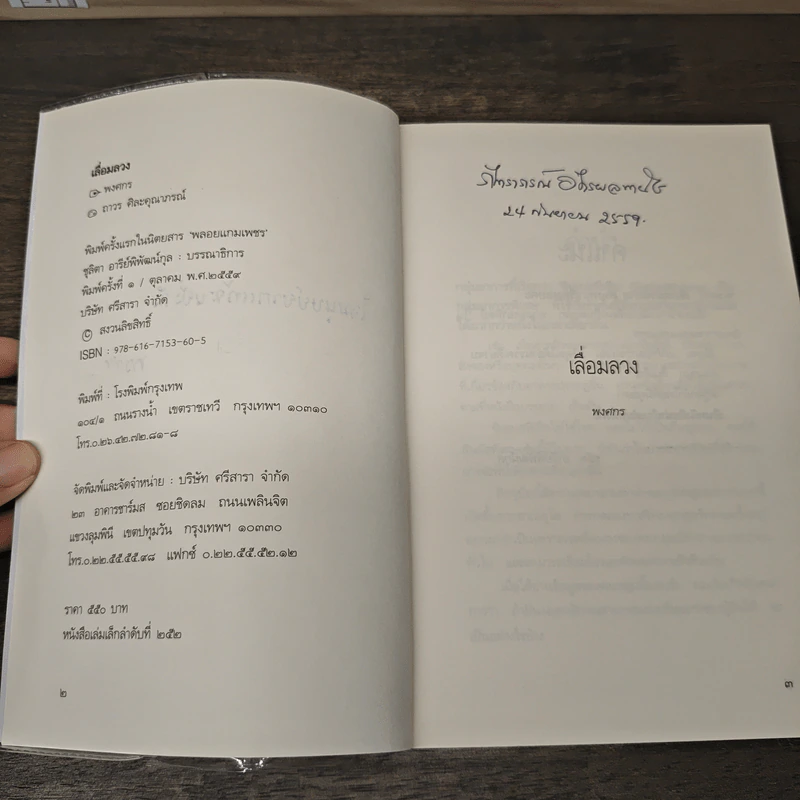 เลื่อมลวง
พงศกร
ถาวร ศิละคุณาภรณ์
พิมพ์ครั้งแรกในนิตยสาร 'พลอยแกมเพชร'
ชุลิตา อารีย์พิพัฒน์กุล : บรรณาธิการ
พิมพ์ครั้งที่ ๑ / ตุลาคม พ.ศ.๒๕๕๙
บริษัท ศรีสารา จำกัด
© สงวนลิขสิทธิ์
ISBN : 978-616-7153-60-5
พิมพ์ที่ : โรงพิมพ์กรุงเทพ
๑๐๔/๑ ถนนรางน้ำ เขตราชเทวี กรุงเทพฯ ๑๐๓๑๐
โทร.๐.๒๖.๔๒.๗๒.๘๑-๘
จัดพิมพ์และจัดจำหน่าย : บริษัท ศรีสารา จำกัด
๒๓ อาคารชาร์มส ซอยชิดลม ถนนเพลินจิต
แขวงลุมพินี เขตปทุมวัน กรุงเทพฯ ๑๐๓๓๐
โทร.๐.๒๒.๕๕.๕๕.๙๘ แฟกซ์ ๐.๒๒.๕๕.๕๒.๑๒
ราคา ๕๕๐ บาท
หนังสือเล่มเล็กลำดับที่ ๒๕๒
๒
24 กันยายน 2559.
เลื่อมลวง
พงศกร
๓